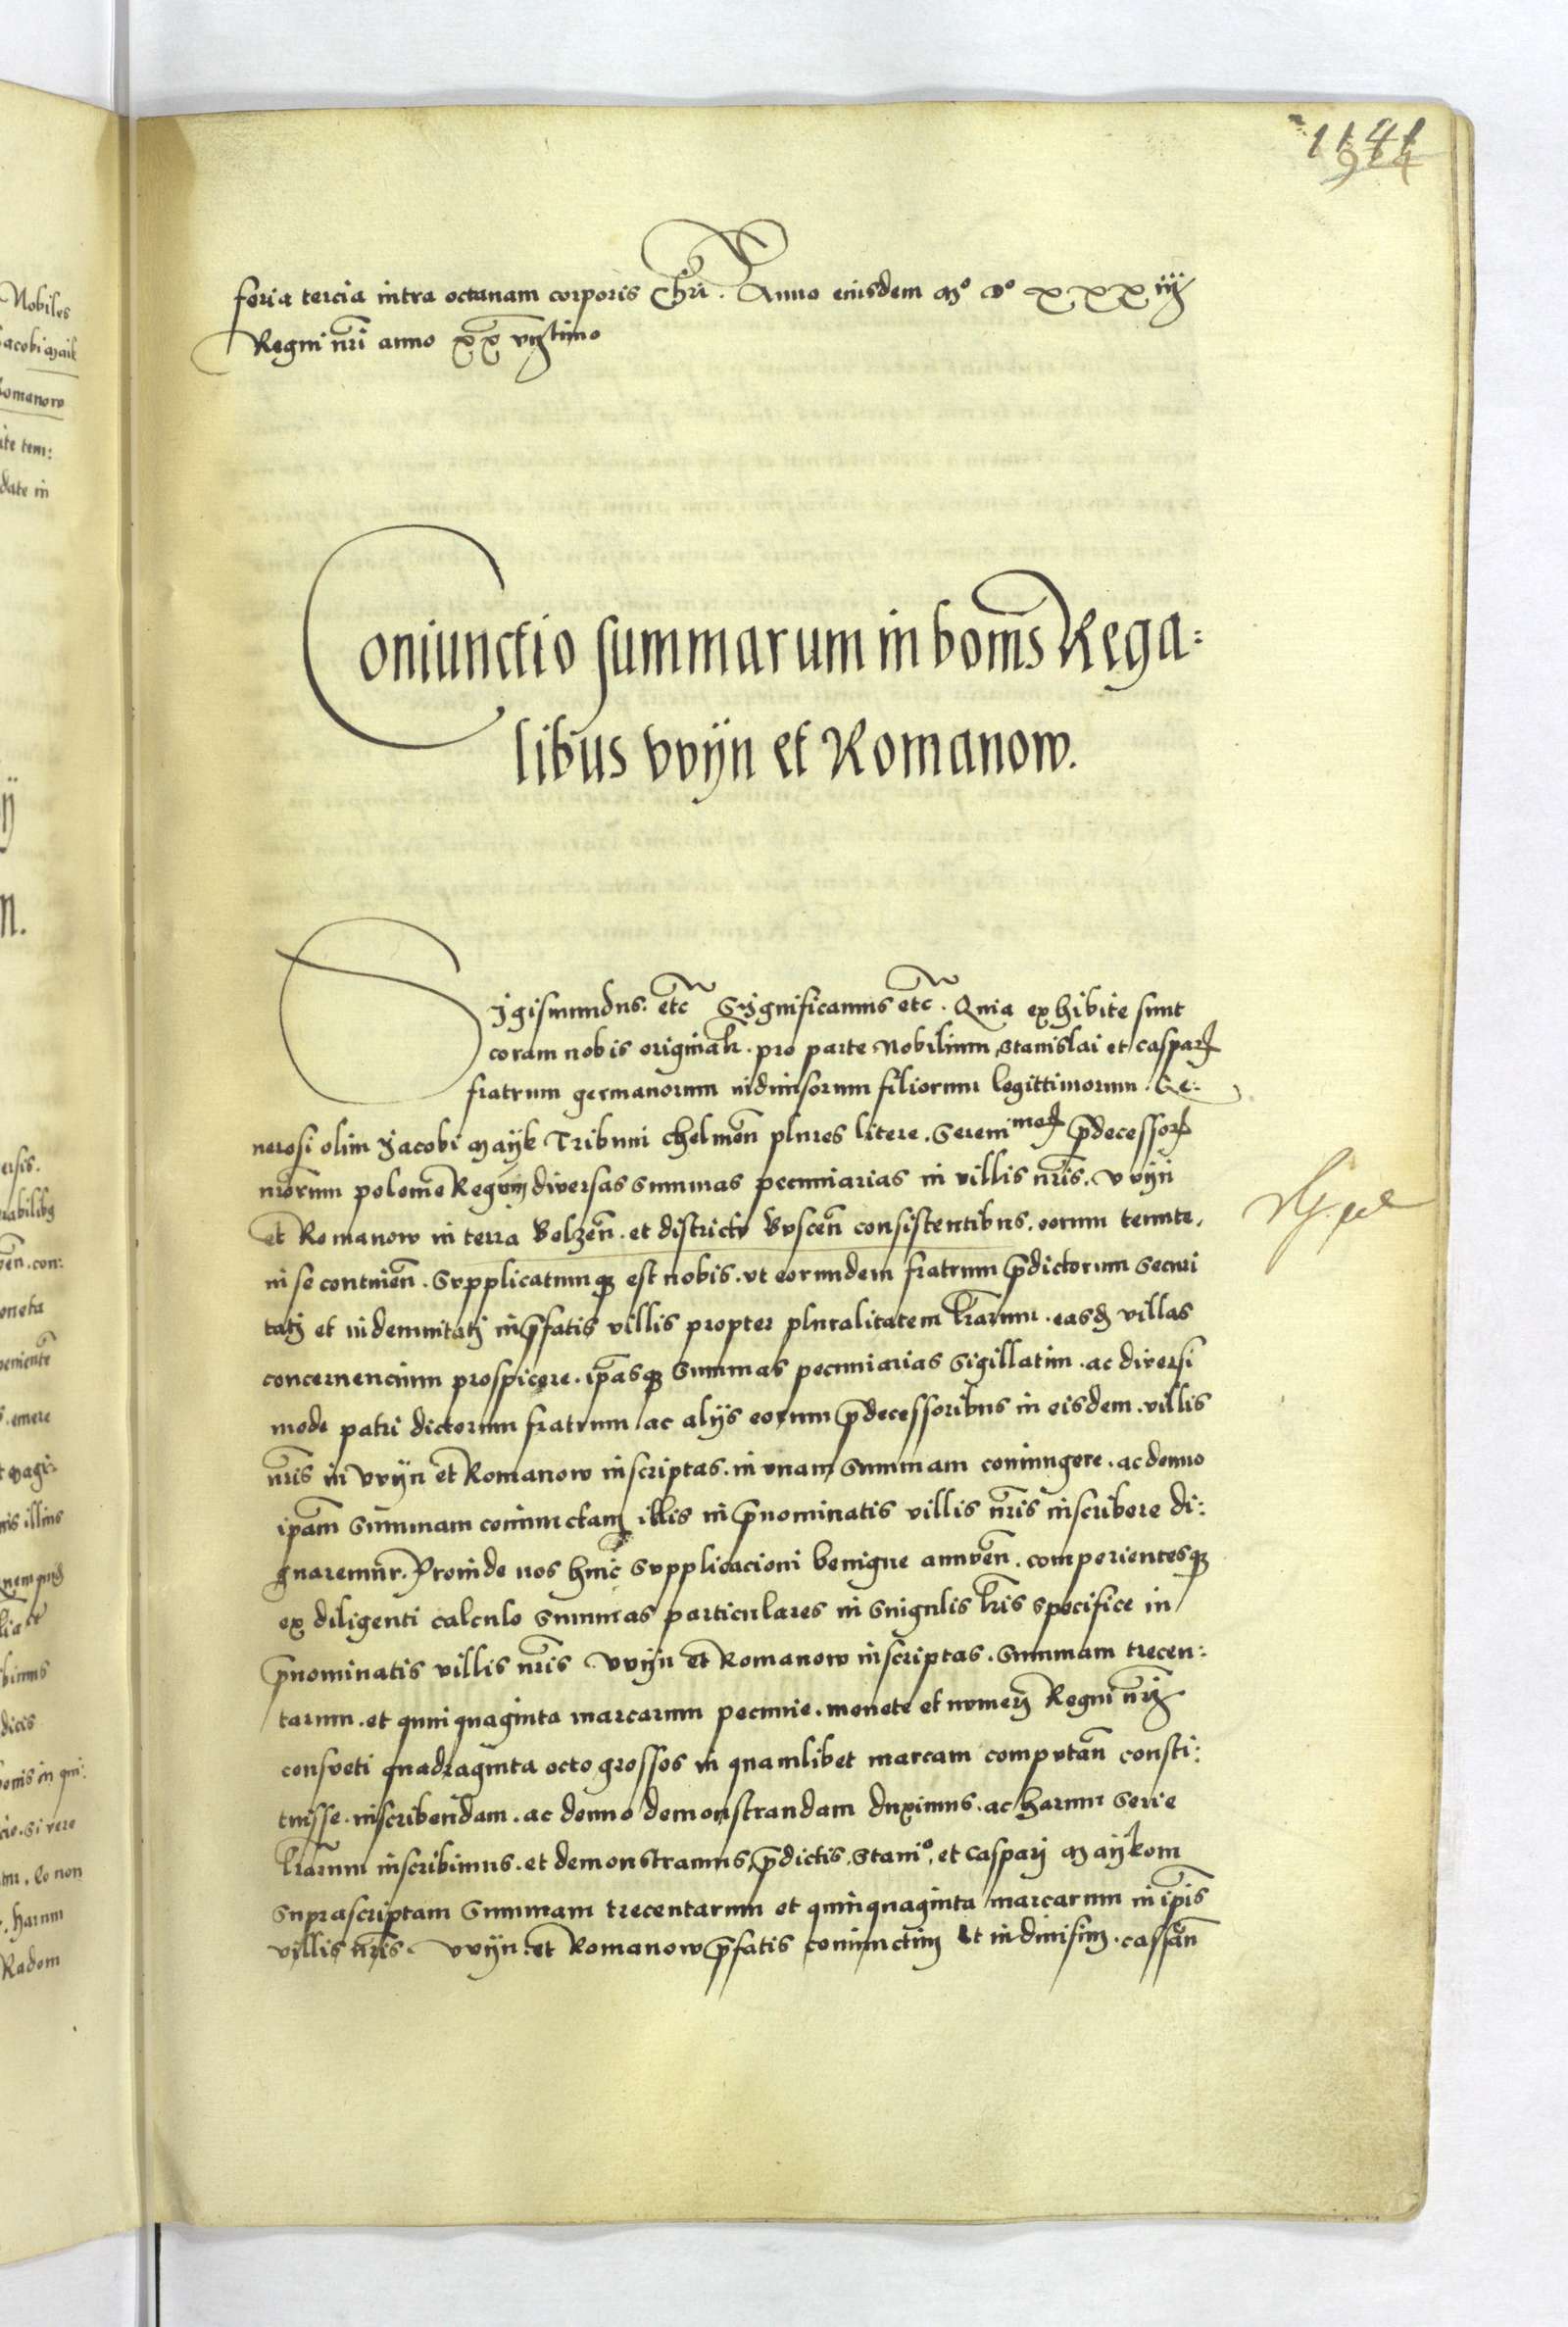 feria tercia intra octauam corporis Chri. Anno eiusdem Mo Do xxxiij
Regni nri anno xxvijtimo
Coniunctio summarum in bonis Rega:
libus Vvijn et Romanow.
Sigismundus. etc Significamus etc. Quia exhibite sunt
coram nobis original. pro parte Nobilium, Stanislai et Caspar
fratrum germanorum indiuisorum filiorum legittimorum. Ge:
nerosi olim Jacobi Maijk Tribuni Chelmen plures litere. Serenimor predecessor
nrorum polonie Regum diversas summas pecuniarias in villis nris. Vvijn
et Romanow in terra Belzen. et districtu Buscen consistentibus. eorum tenute.
in se continen. Supplicatumq est nobis. vt eorundem fratrum predictorum securi
tatj et indemnitatj in prefatis villis propter pluralitatem lrarum. easd villas
concernencium prospicere. ipasq summas pecuniarias sigillatim. ac diversi
mode patri dictorum fratrum ac alijs eorum predecessoribus in eisdem. villis
nris in Vvijn et Romanow inscriptas. in vnam summam coniungere. ac denuo
ipam summam coniunctam illis in prenominatis villis nris inscribere di:
gnaremur. Proinde nos huic supplicacioni benigne annuen. comperientesq
ex diligenti calculo summas particulares in singulis lris specifice in
prenominatis villis nris Vvijn et Romanow inscriptas. summam trecen:
tarum. et quinquaginta marcarum pecunie. monete et numerj Regni nri
consveti quadraginta octo grossos in quamlibet marcam computan consti:
tuisse. inscribendam. ac denuo demonstrandam duximus. ac harum serie
lrarum inscribimus. et demonstramus, predictis. Stanio, et Caspari Maijkom
suprascriptam summam trecentarum et quinquaginta marcarum in ipis
villis nris. Vvijn. et Romanow prefatis coniunctim et indiuisim. cassan